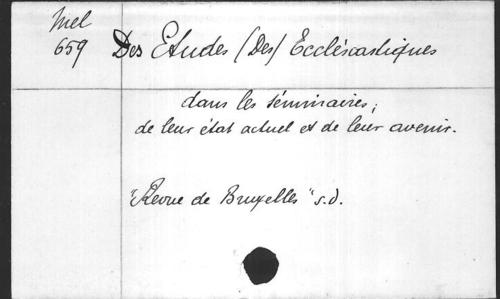 Miel
659
Des Etudes (Des) Ecclésiastiques
dans les séminaires;
de leur état actuel et de leur avenir.
"Revue de Bruxelles" s.d.